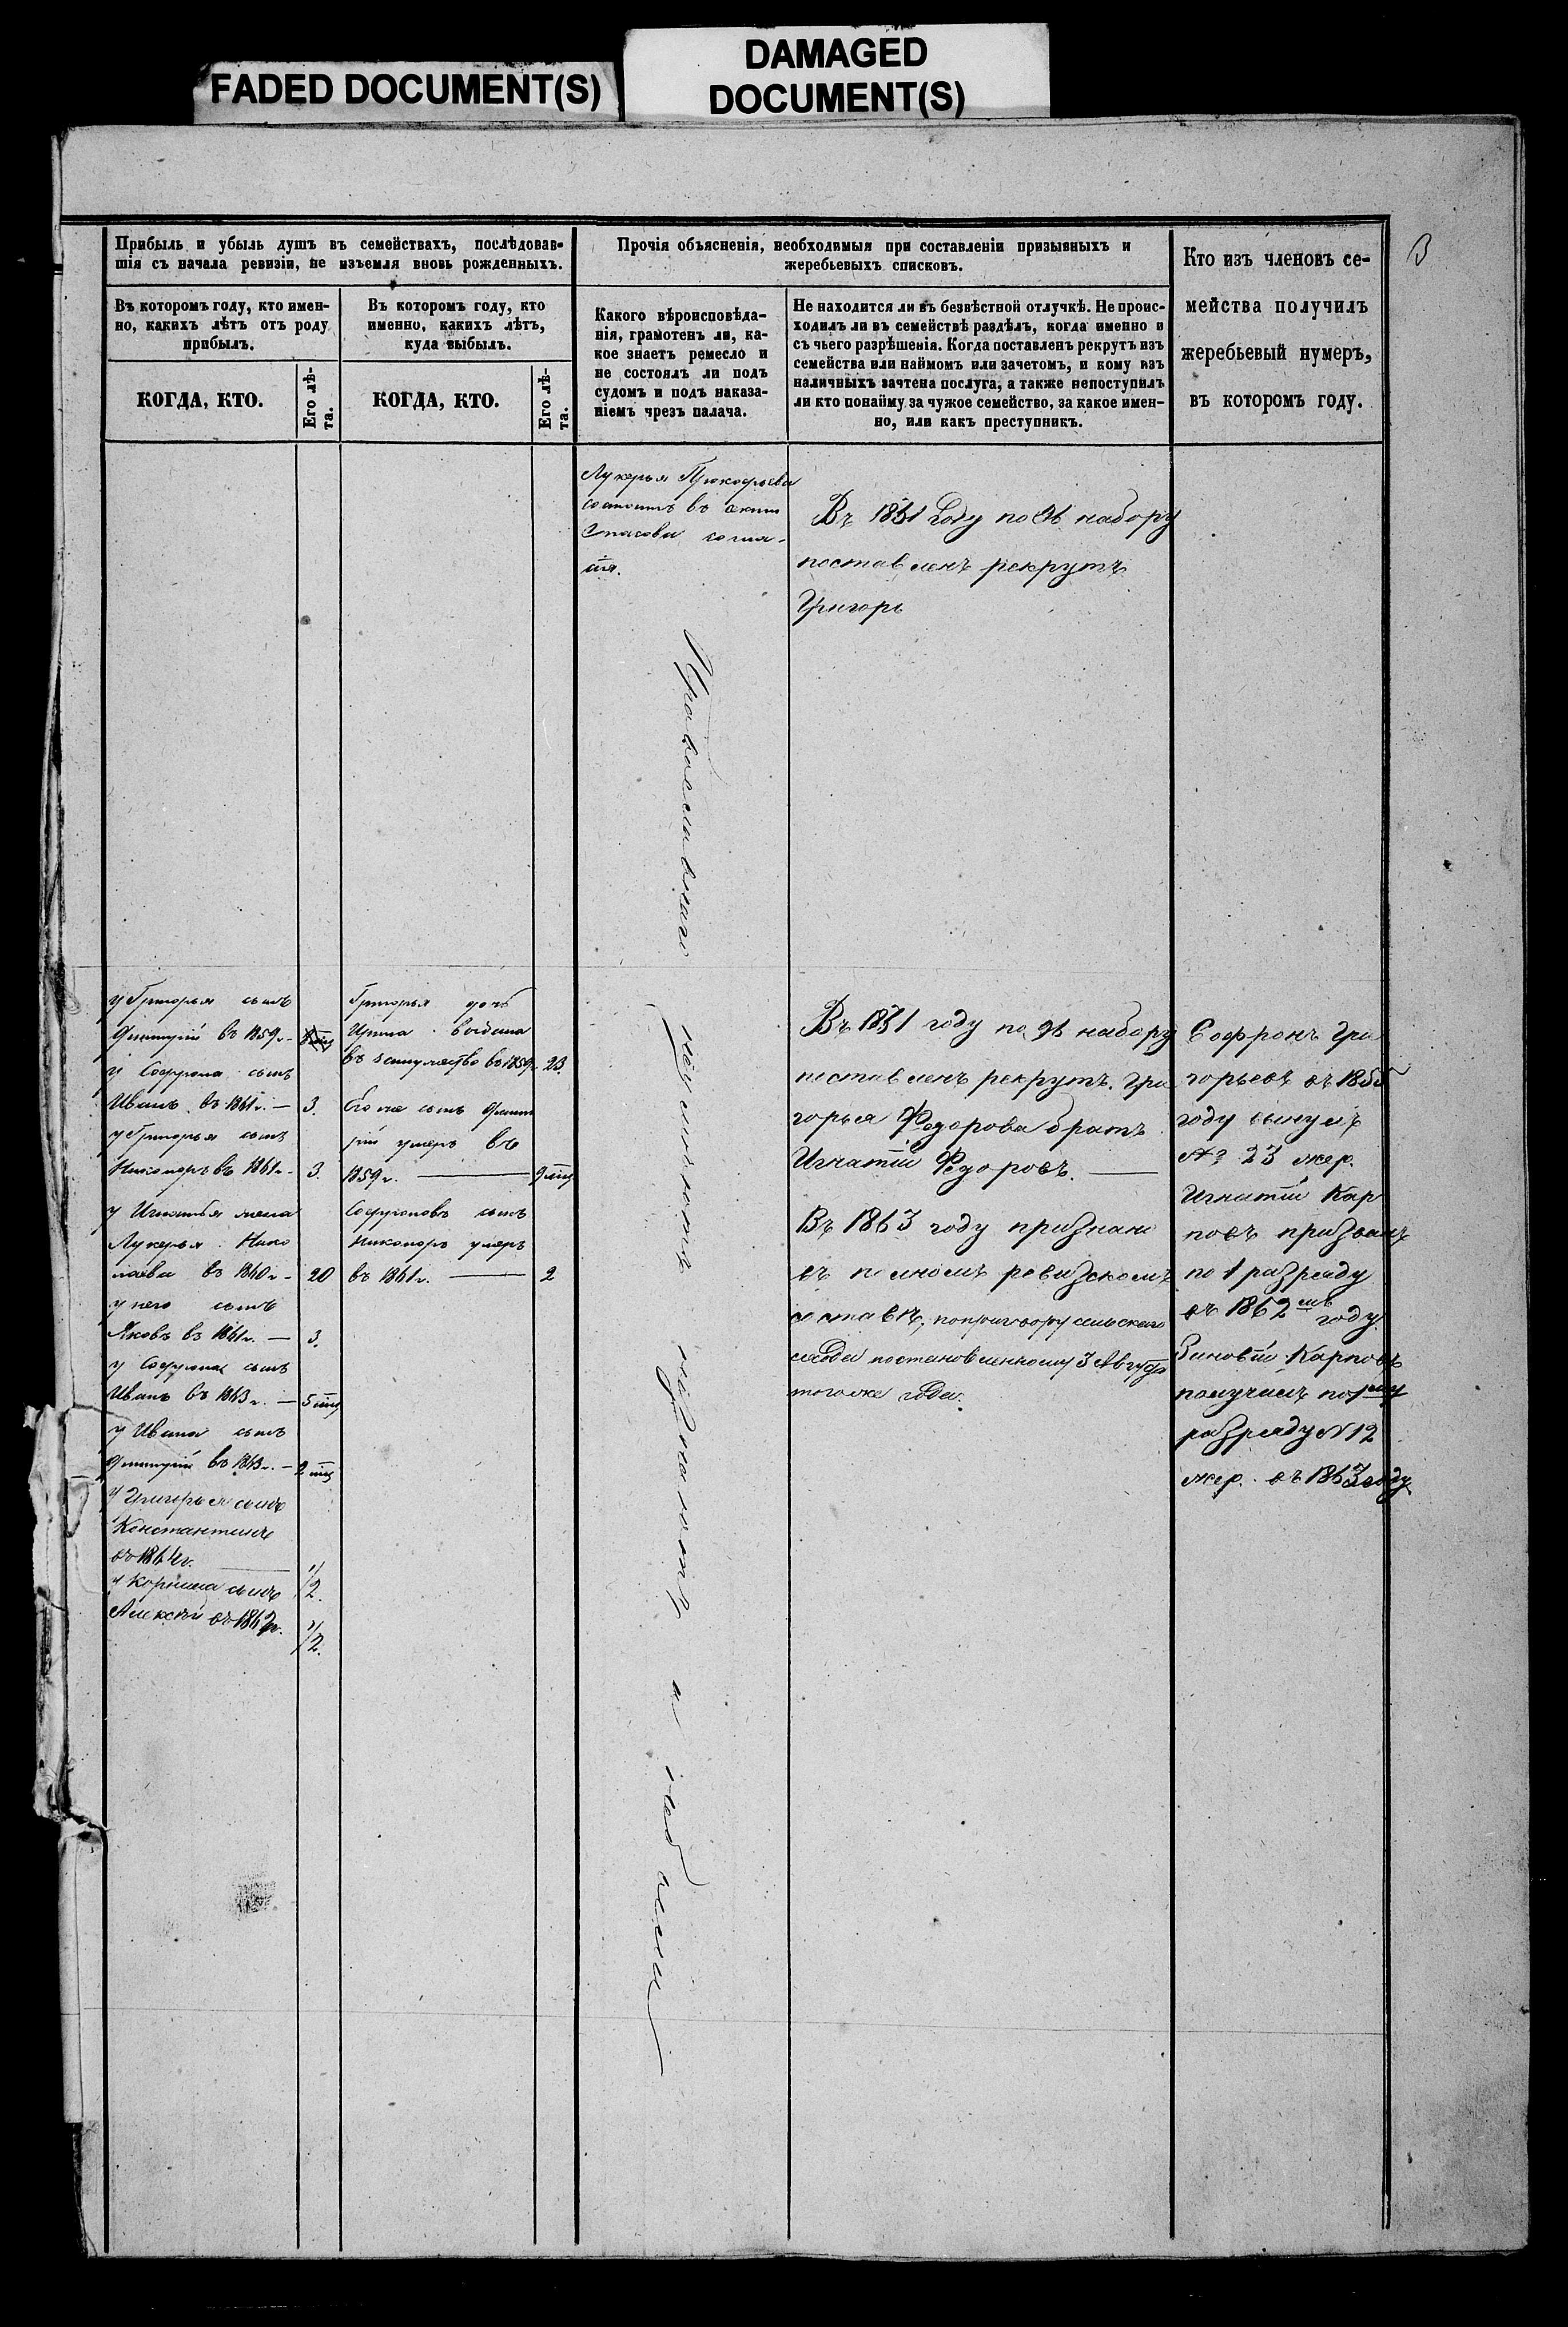 FADED DOCUMENT(S)
DAMAGED
DOCUMENT(S)
3
Прибыль и убыль душъ въ семействахъ, послѣдовав-
шія съ начала ревизіи, не изъемля вновь рожденныхъ.
Въ которомъ году, кто имен-
но, какихъ лѣтъ отъ роду
прибылъ.
КОГДА, КТО.
Его лѣ-
та.
Въ которомъ году, кто
именно, какихъ лѣтъ,
куда выбылъ.
КОГДА, КТО.
Его лѣ-
та.
Прочія объясненія, необходимыя при составленіи призывныхъ и
жеребьевыхъ списковъ.
Какого вѣроисповѣда-
нія, грамотенъ ли, ка-
кое знаетъ ремесло и
не состоялъ ли подъ
судомъ и подъ наказа-
ніемъ чрезъ палача.
Не находится ли въ безвѣстной отлучкѣ. Не проис-
ходилъ ли въ семействѣ раздѣлъ, когда именно и
съ чьего разрѣшенія. Когда поставленъ рекрутъ изъ
семейства или наймомъ или зачетомъ, и кому изъ
наличныхъ зачтена послуга, а также непоступилъ
ли кто понайму за чужое семейство, за какое имен-
но, или какъ преступникъ.
Кто изъ членовъ се-
мейства получилъ
жеребьевый нумеръ,
въ которомъ году.
Лукерья Прокофьева
состоитъ въ
Спасова согла-
сія.
Въ 1851 году по 9й набору
поставленъ рекрутъ
Григорь
Православнаго
и
у Григорья сынъ
Дмитрій въ 1859г.
у Софрона сынъ
Иванъ въ 1861г. — 3.
у Григорья сынъ
Никоноръ въ 1861г. 3.
у Игнатья жена
Лукерья Нико
лаева въ 1860г. 20
у него сынъ
Яковъ въ 1861г. — 3.
у Софрона сынъ
Иванъ въ 1863г. — 5 мц
у Ивана сынъ
Дмитрій въ 1863г. — 2 мц
у Григорья сынъ
Константинъ
въ 1864г. 1/2.
у Корнила сынъ
Алексѣй въ 1862г. 1/2.
Григорья дочь
Ирина выдана
въ замужество въ 1859г. 23.
Его же сынъ Дмит
рій умеръ въ
1859г. — 9 мц
Софроновъ сынъ
Никоноръ умеръ
въ 1861г. — 2
Въ 1851 году по 9й набору
поставленъ рекрутъ. Гри
горья Федорова братъ
Игнатій Федоровъ. —
Въ 1863 году признано
въ полномъ ревизскомъ
составѣ, поприговору сельскаго
схода постановленному 3 Августа
того же года.
Софронъ Гри
горьевъ въ
году вынулъ
№ 23 жер.
Игнатій Кар
повъ призванъ
по 1 разряду
въ 1862мъ году.
Зиновій Карповъ
получилъ по 1му
разряду N 12
жер. въ 1863 году.